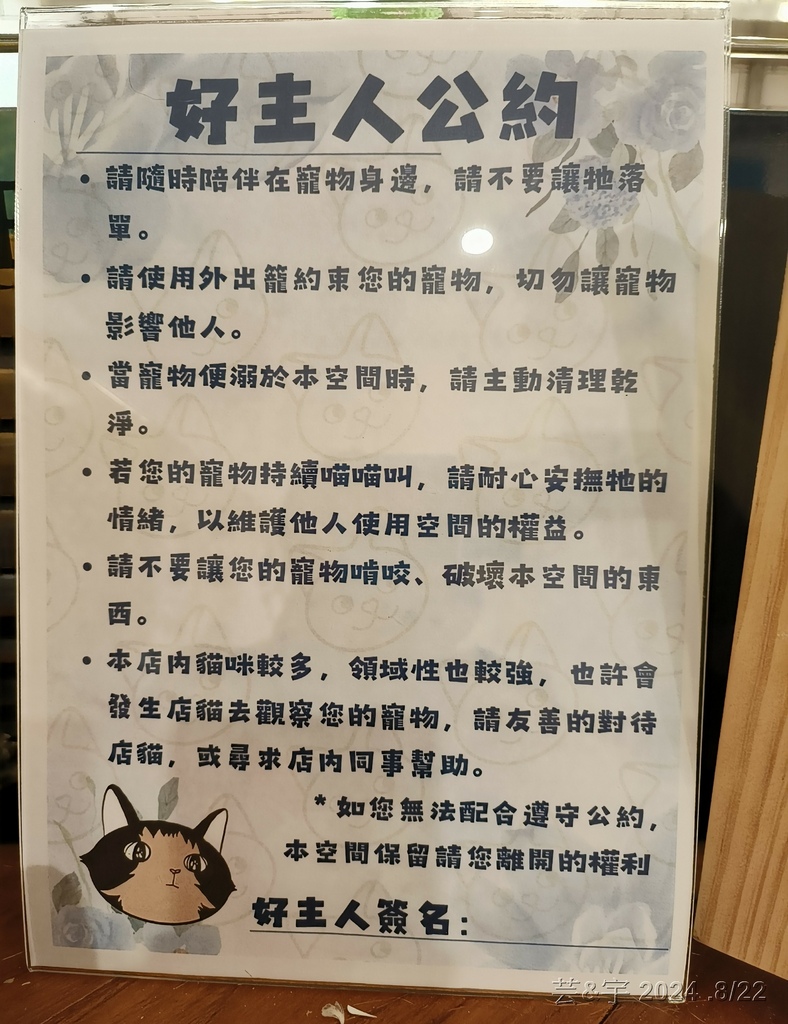 好主人公約
• 請隨時陪伴在寵物身邊，請不要讓牠落
單。
• 請使用外出籠約束您的寵物，切勿讓寵物
影響他人。
• 當寵物便溺於本空間時，請主動清理乾
淨。
• 若您的寵物持續喵喵叫，請耐心安撫牠的
情緒，以維護他人使用空間的權益。
• 請不要讓您的寵物啃咬、破壞本空間的東
西。
• 本店內貓咪較多，領域性也較強，也許會
發生店貓去觀察您的寵物，請友善的對待
店貓，或尋求店內同事幫助。
*如您無法配合遵守公約，
本空間保留請您離開的權利
好主人簽名：
芸&宇 2024 .8/22